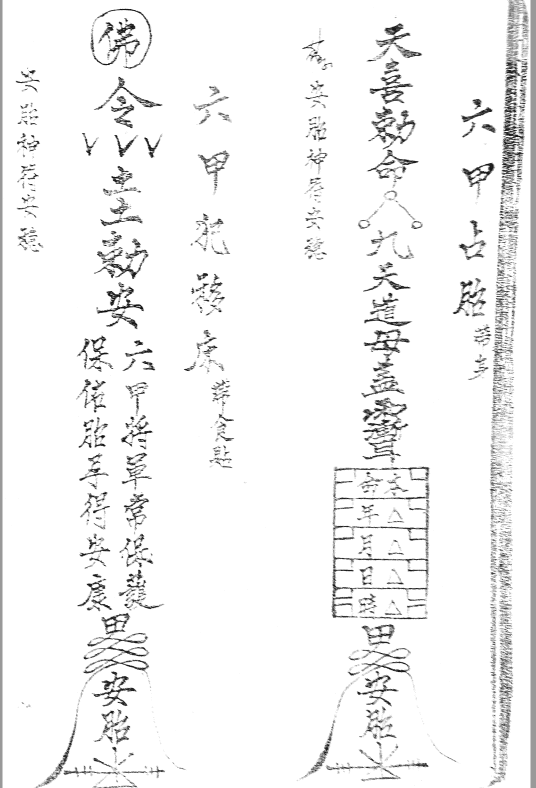 六甲占胎帶身
天喜勅命
九天道母
本命
△年
△月
△日
△時
安胎
安胎神符安穩
六甲犯移床帶食貼
佛令
勅安
六甲將軍常保護
保佑胎孕得安康
安胎
安胎神符安穩